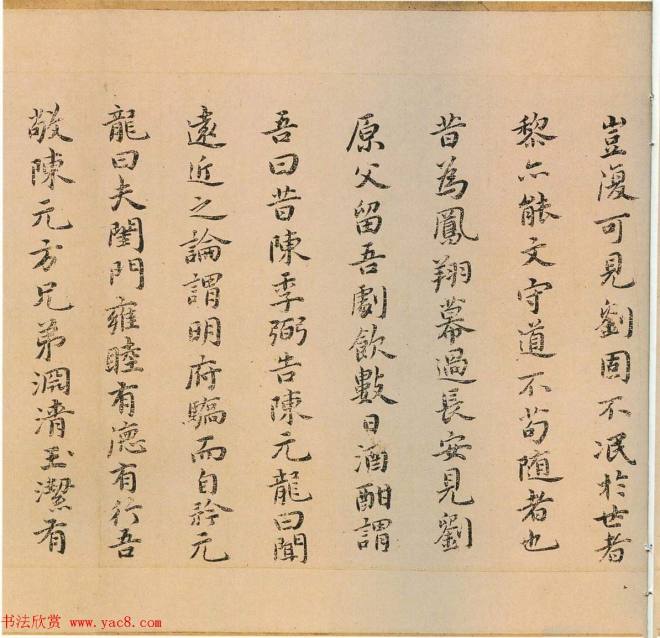 豈復可見劉固不泯於世者
黎亦能文守道不苟随者也
昔為鳳翔幕過長安見劉
原父留吾劇飲數日酒酣謂
吾曰昔陳季弼告陳元龍曰聞
遠近之論謂明府驕而自矜元
龍曰夫閨門雍睦有德有行吾
敬陳元方兄弟淵清玉潔有
书法欣赏 www.yac8.com